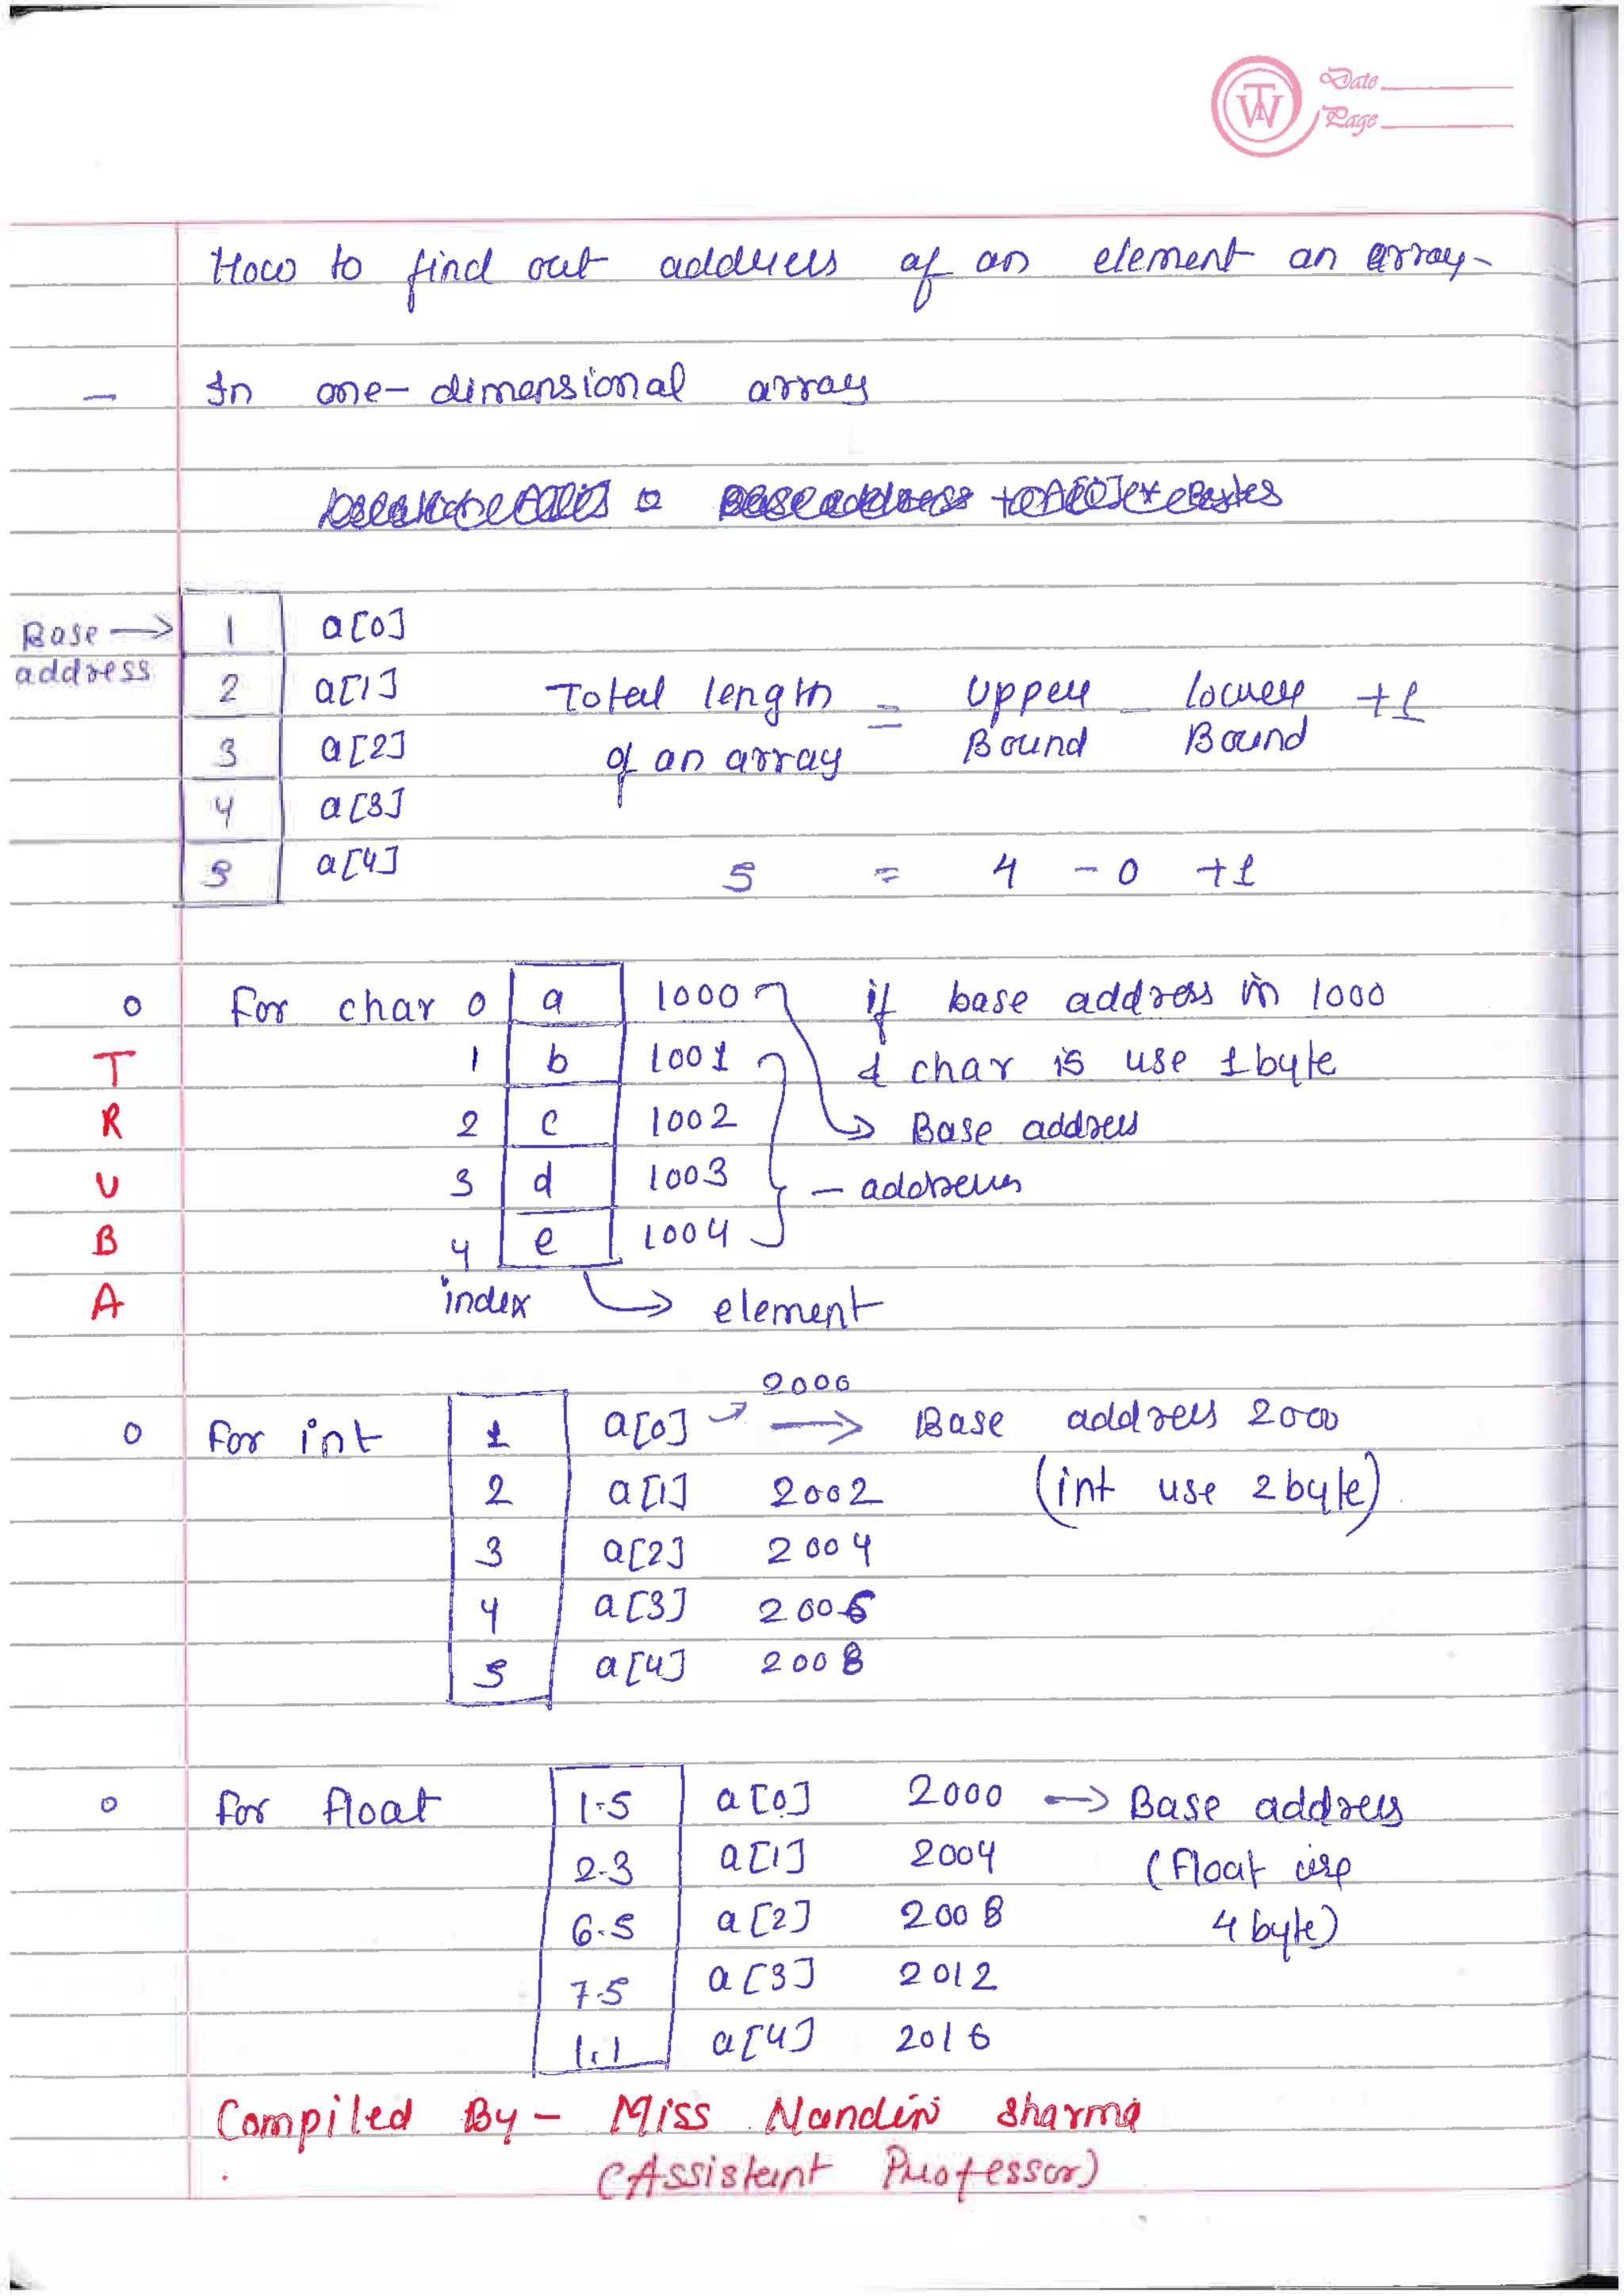 Date
Page
TW
How to find out address of an element an array-
- In one-dimensional array
Base → 1 a[0]
address 2 a[1] Total length = Upper - lower +1
3 a[2] of an array Bound Bound
4 a[3]
5 a[4] 5 = 4 - 0 +1
o For char 0 a 1000 if base address in 1000
T 1 b 1001 & char is use 1 byte
R 2 c 1002 → Base address
U 3 d 1003 - address
B 4 e 1004
A index → element
2000
o For int 1 a[0] → Base address 2000
2 a[1] 2002 (int use 2 byte)
3 a[2] 2004
4 a[3] 2006
5 a[4] 2008
o for float 1.5 a[0] 2000 → Base address
2.3 a[1] 2004 (float use
6.5 a[2] 2008 4 byte)
7.5 a[3] 2012
1.1 a[4] 2016
Compiled By - Miss Nandini Sharma
(Assistant Professor)